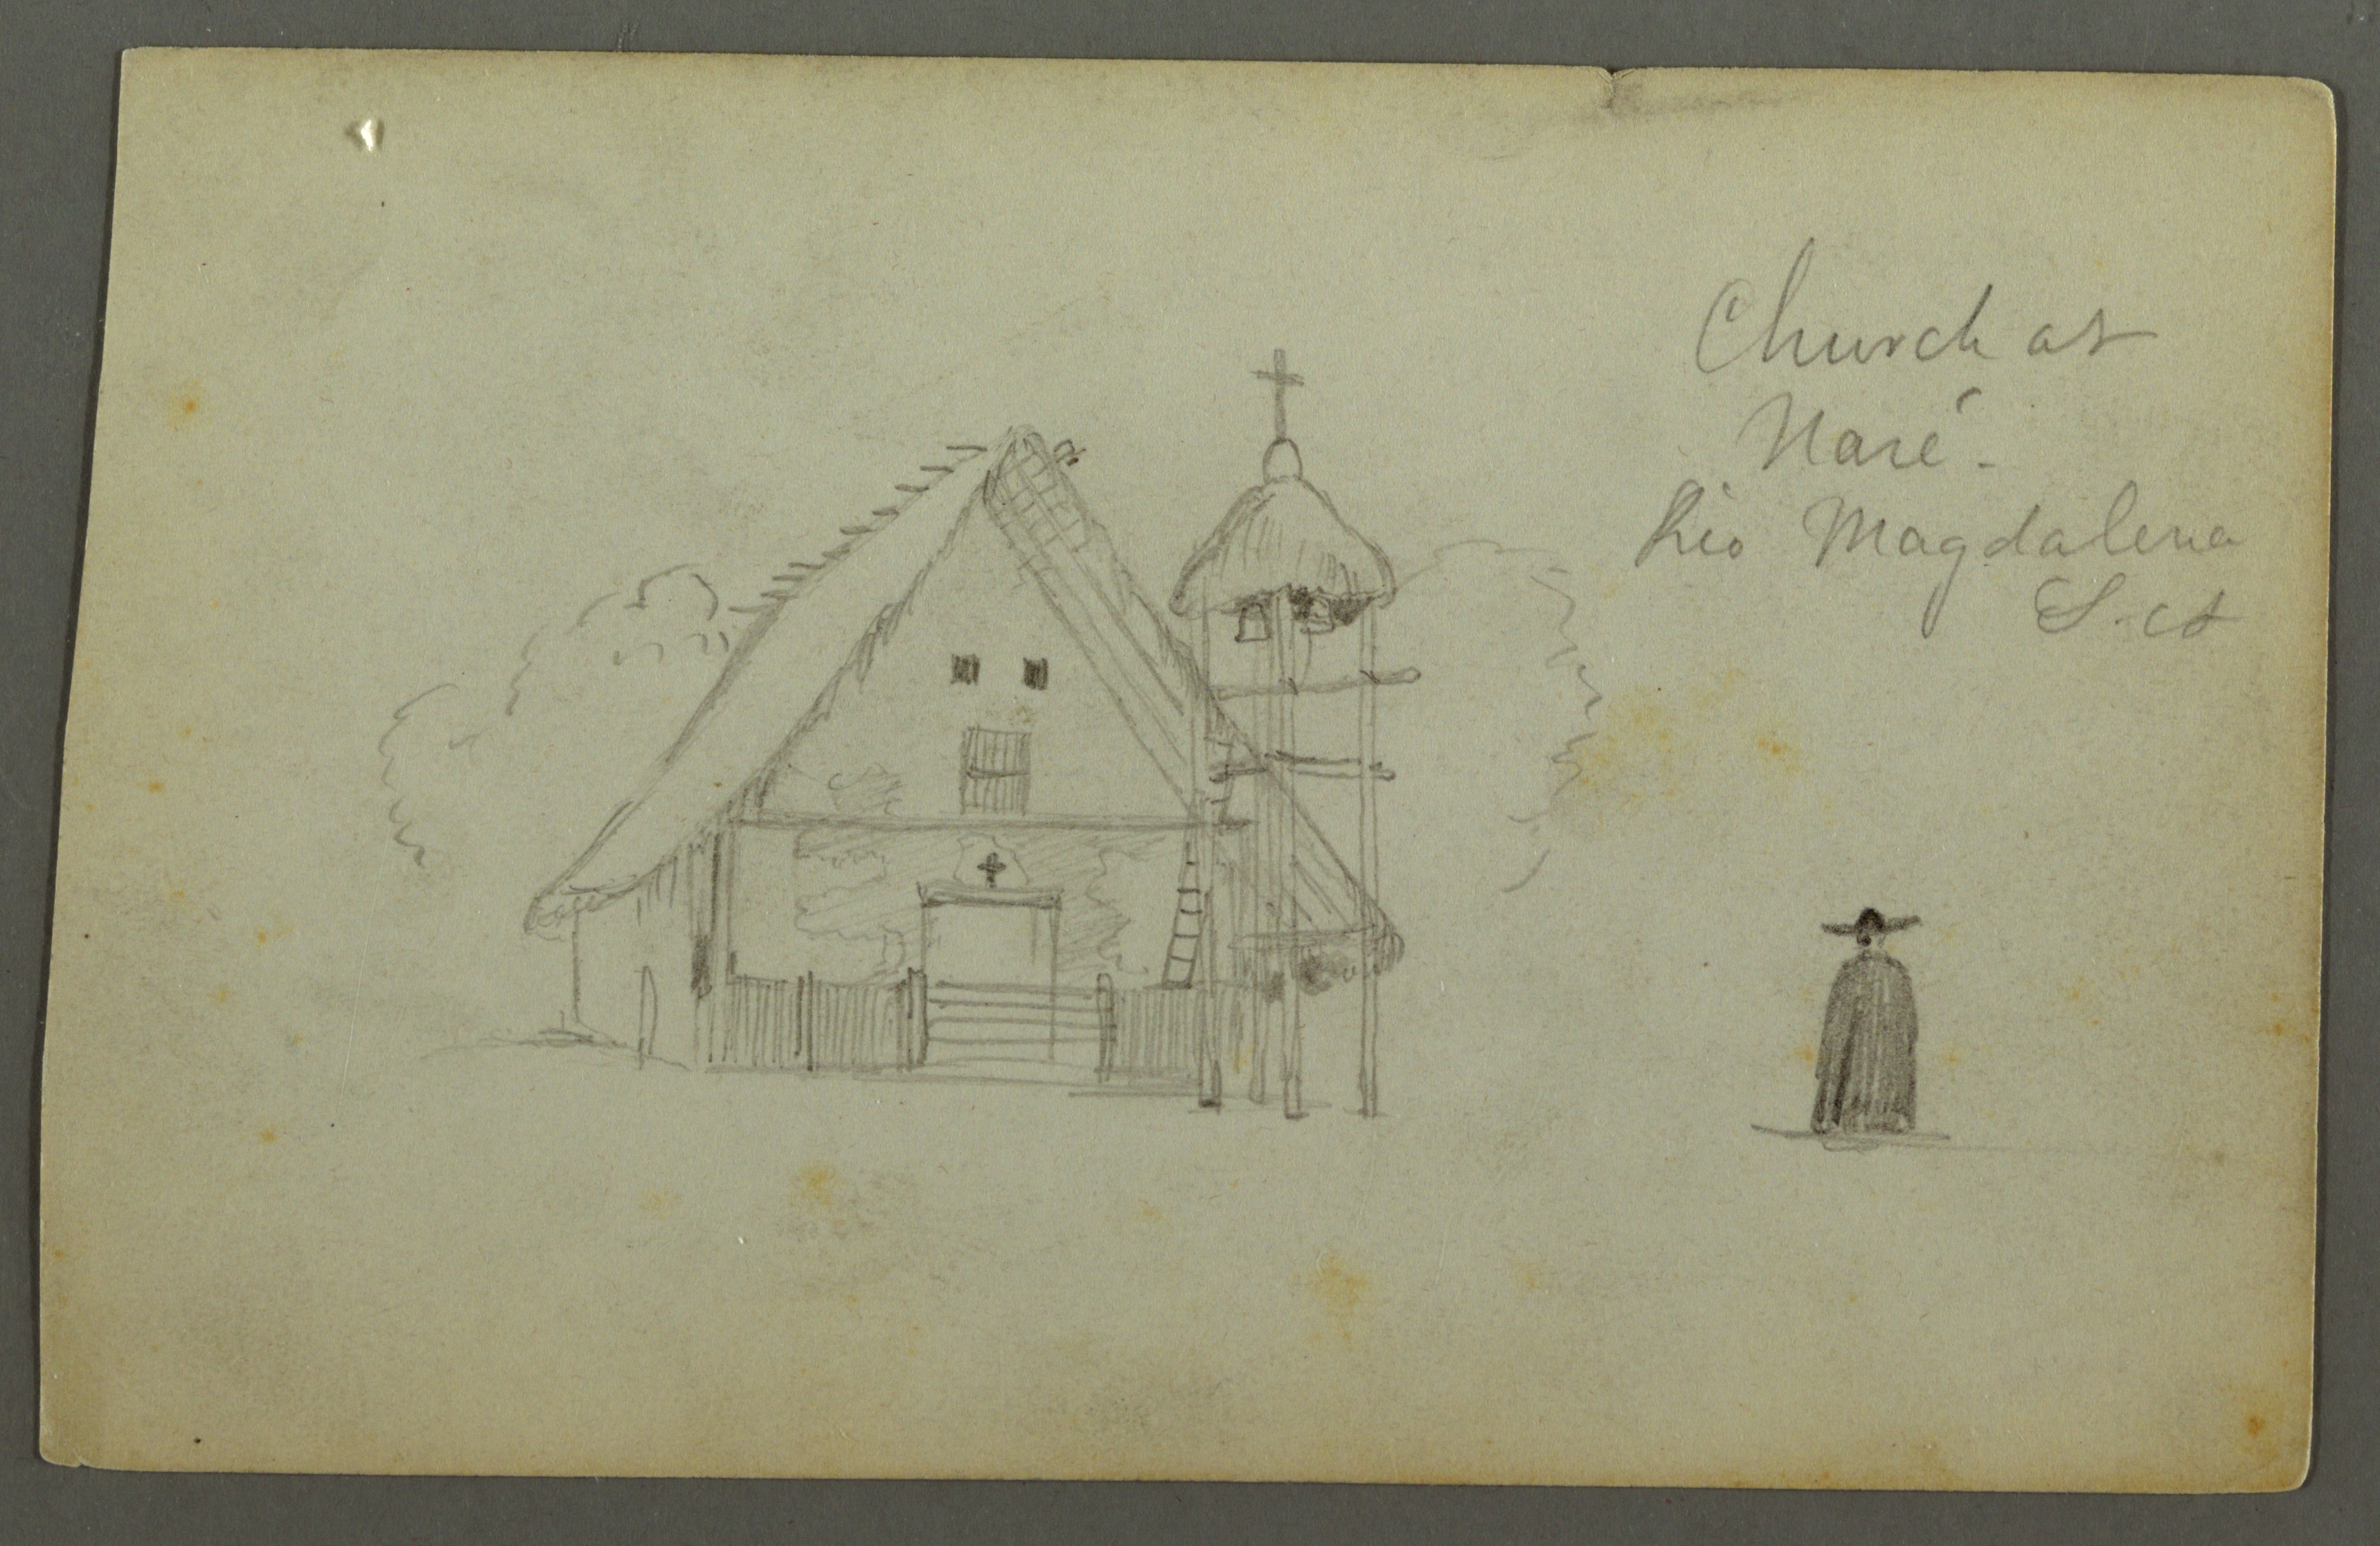 Church at
Naré.
Rio Magdalena
S. A